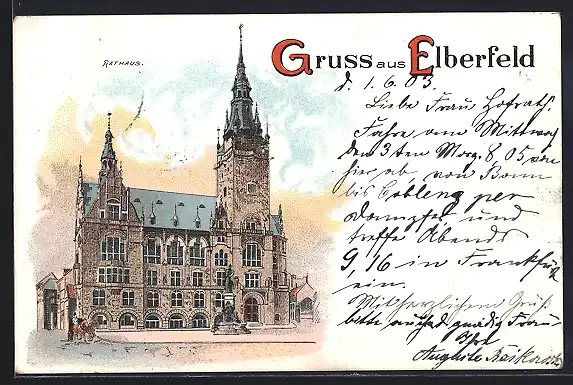 RATHAUS.
Gruss aus Elberfeld
d. 1.6.03.
Liebe Frau Hofrath.
Fahre am Mittwoch
den 3ten Morg. 8,05 von
hier ab, von Bonn
bis Coblenz per
Dampfer und
treffe Abends
9,16 in Frankfurt
ein.
Mit herzlichem Gruß
bitte gnädig Frau
Ihre
Auguste